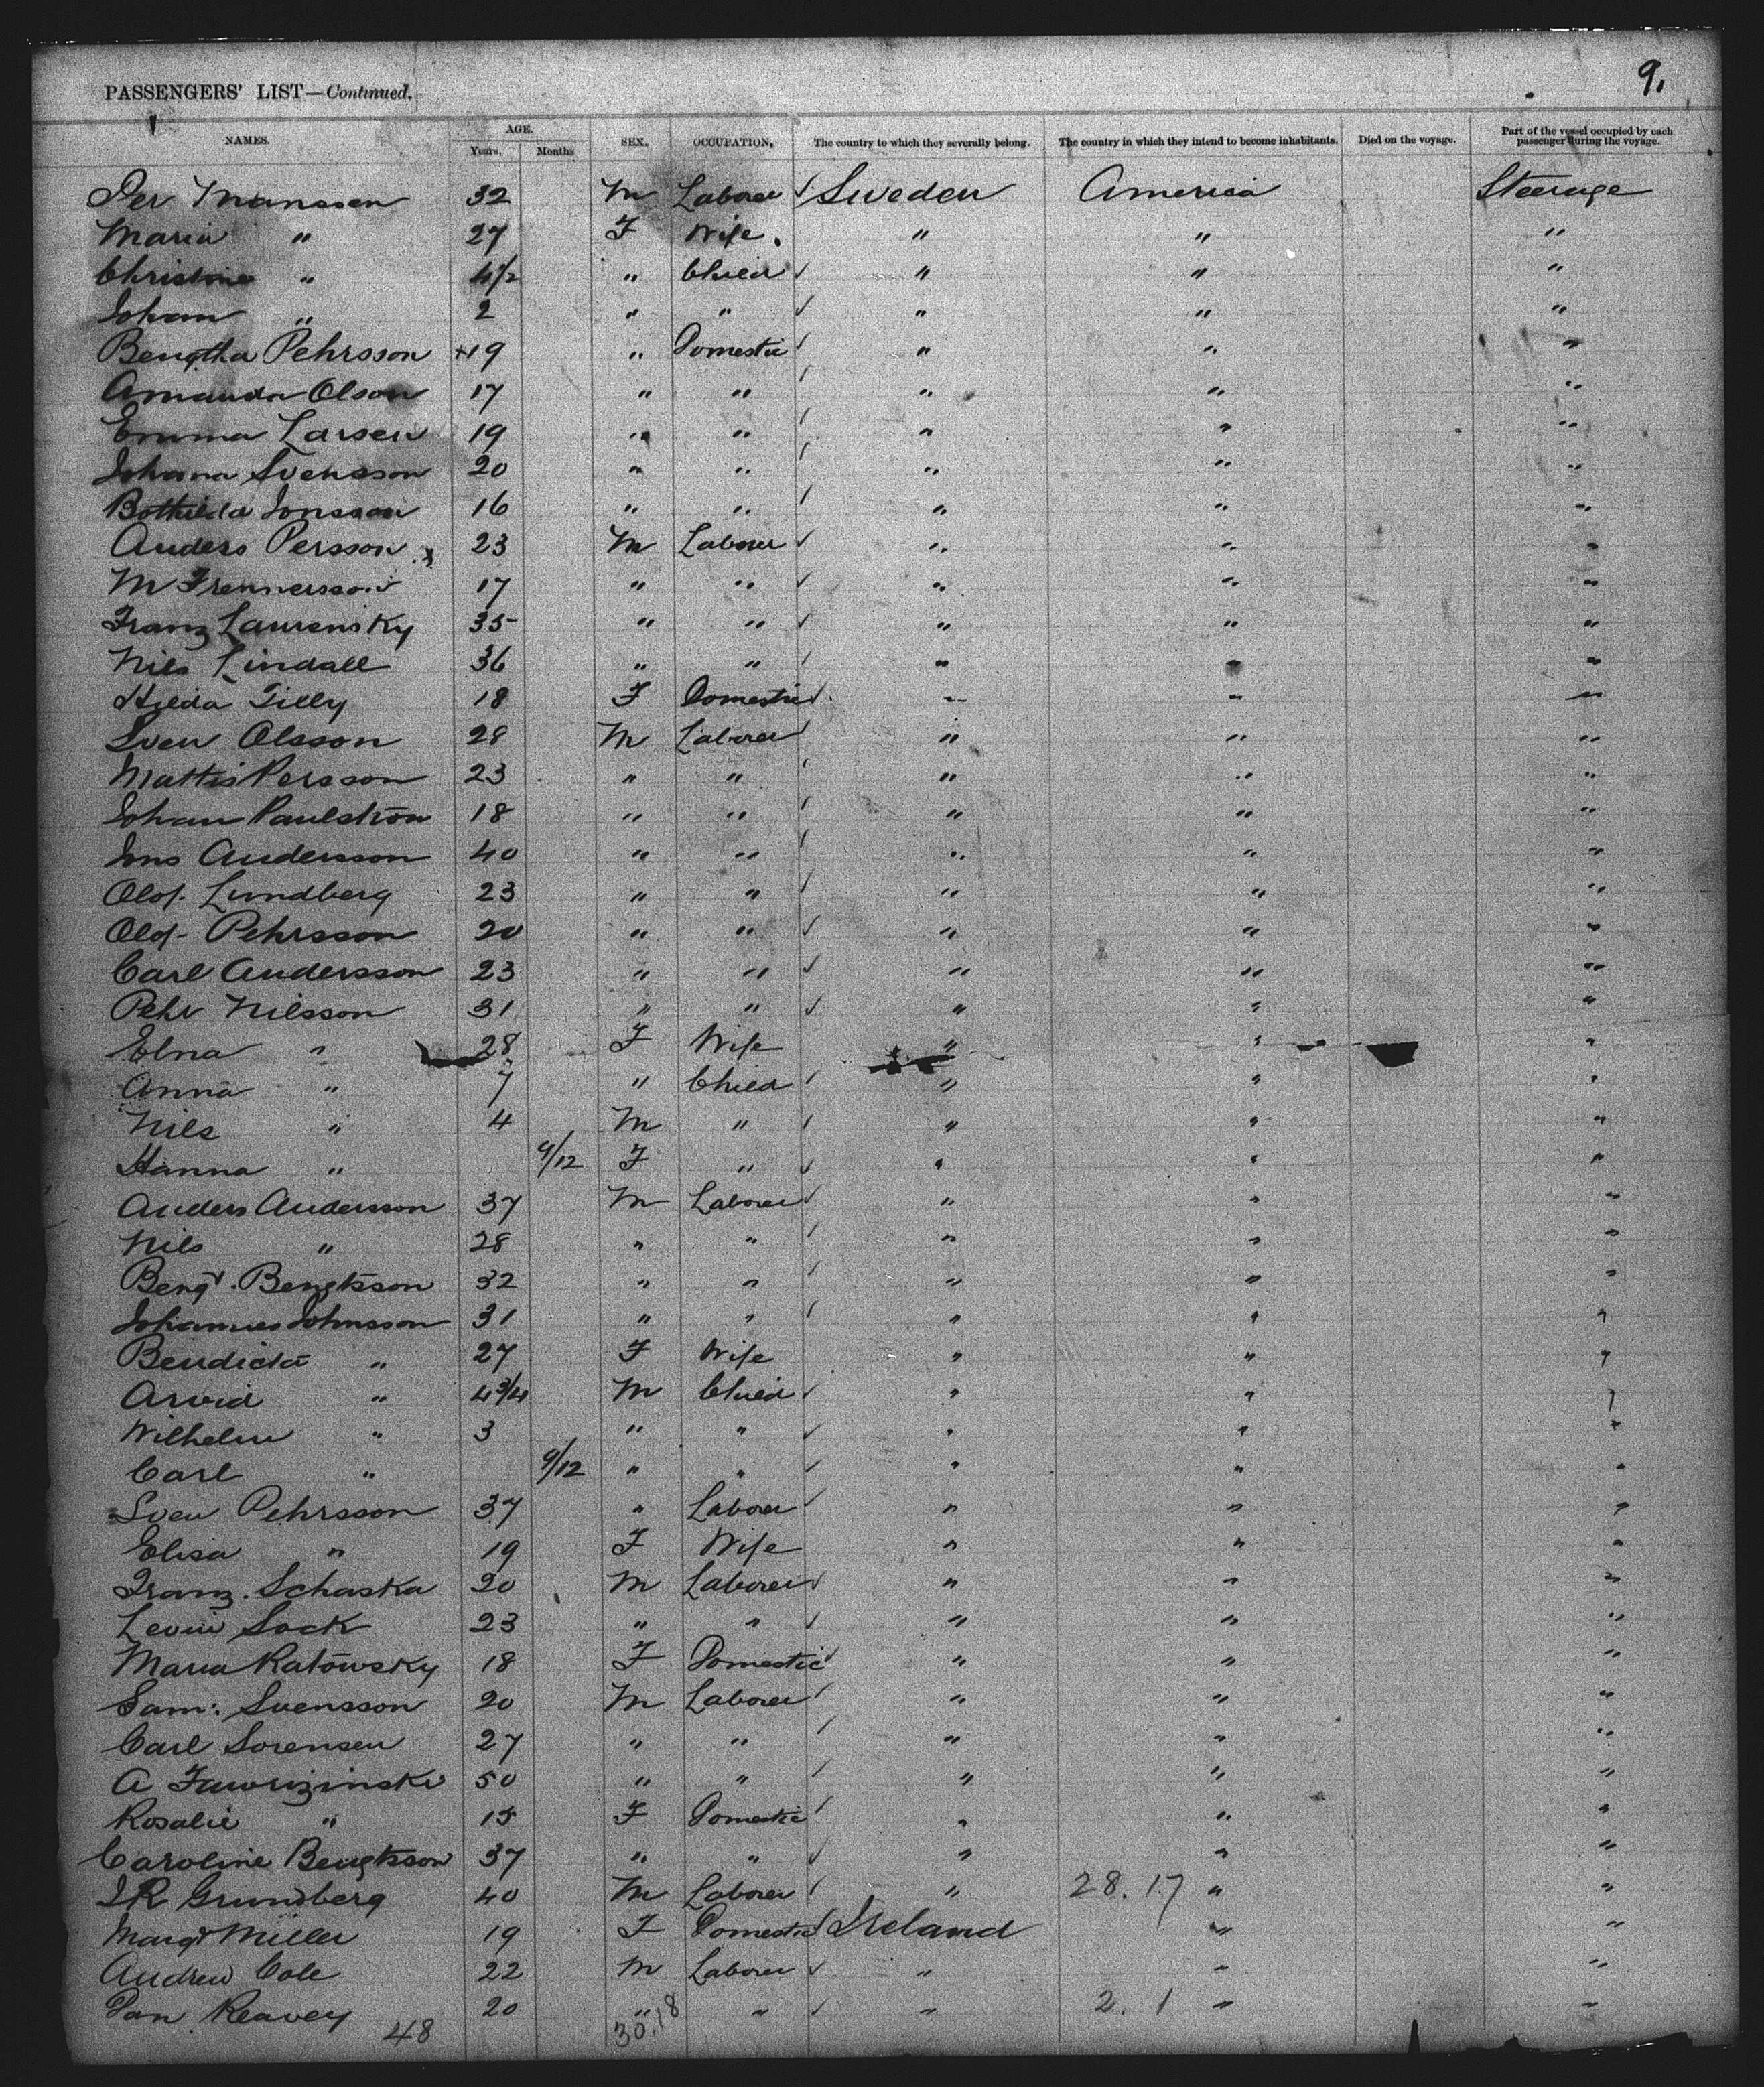 9.
PASSENGERS' LIST—Continued.
NAMES. AGE. Years. Months SEX. OCCUPATION. The country to which they severally belong. The country in which they intend to become inhabitants. Died on the voyage. Part of the vessel occupied by each passenger during the voyage.
Per Manssen 32 M Laborer ✓ Sweden America Steerage
Maria " 27 F Wife " " "
Christine " 4 1/2 " Child ✓ " " "
Johan " 2 " " ✓ " " "
Bengtha Pehrsson +19 " Domestic ✓ " " "
Amanda Olson 17 " " ✓ " " "
Emma Larsen 19 " " ✓ " " "
Johana Svensson 20 " " ✓ " " "
Bothilda Jonsson 16 " " ✓ " " "
Anders Persson x 23 M Laborer ✓ " " "
M 17 " " ✓ " " "
Franz Laurensky 35 " " ✓ " " "
Nils Lindall 36 " " ✓ " " "
Hilda Tilly 18 F Domestic ✓ " " "
Sven Olsson 28 M Laborer ✓ " " "
Mattis Persson 23 " " ✓ " " "
Johan Paulström 18 " " ✓ " " "
Jns Andersson 40 " " ✓ " " "
Olof Lundberg 23 " " ✓ " " "
Olof Pehrsson 20 " " ✓ " " "
Carl Andersson 23 " " ✓ " " "
Pehr Nilsson 31 " " ✓ " " "
Elna " 28 F Wife " " "
Anna " 7 " Child ✓ " " "
Nils " 4 M " ✓ " " "
Hanna " 9/12 F " ✓ " " "
Anders Andersson 37 M Laborer ✓ " " "
Nils " 28 " " ✓ " " "
Bengt Bengtsson 32 " " ✓ " " "
Johannes Johnsson 31 " " ✓ " " "
Bendicta " 27 F Wife " " "
Arvid " 4 3/4 M Child ✓ " " "
Wilhelm " 3 " " ✓ " " "
Carl " 9/12 " " ✓ " " "
Sven Pehrsson 37 " Laborer ✓ " " "
Elisa " 19 F Wife " " "
Franz Schaska 20 M Laborer ✓ " " "
Levin Sack 23 " " ✓ " " "
Maria Ratowsky 18 F Domestic ✓ " " "
Sam: Svensson 20 M Laborer ✓ " " "
Carl Sorensen 27 " " ✓ " " "
A 50 " " ✓ " " "
Rosalie " 15 F Domestic ✓ " " "
Caroline Bengtsson 37 " " ✓ " " "
Grundberg 40 M Laborer ✓ " 28. 17 " "
Margt Miller 19 F Domestic ✓ Ireland " "
Andrew Cole 22 M Laborer ✓ " " "
Dan Reavey 20 " " ✓ " 2. 1 " "
48 30.18